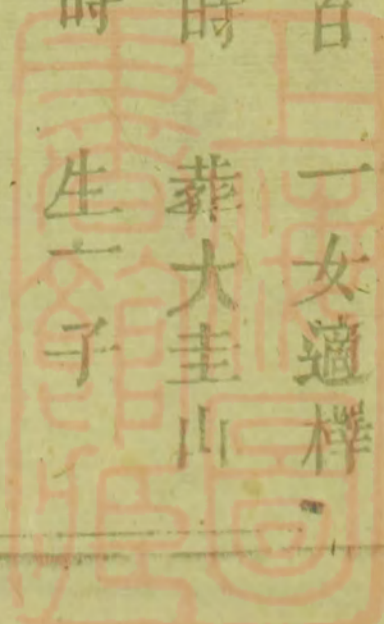 一女適樺
時 葬大圭山
時 生一子